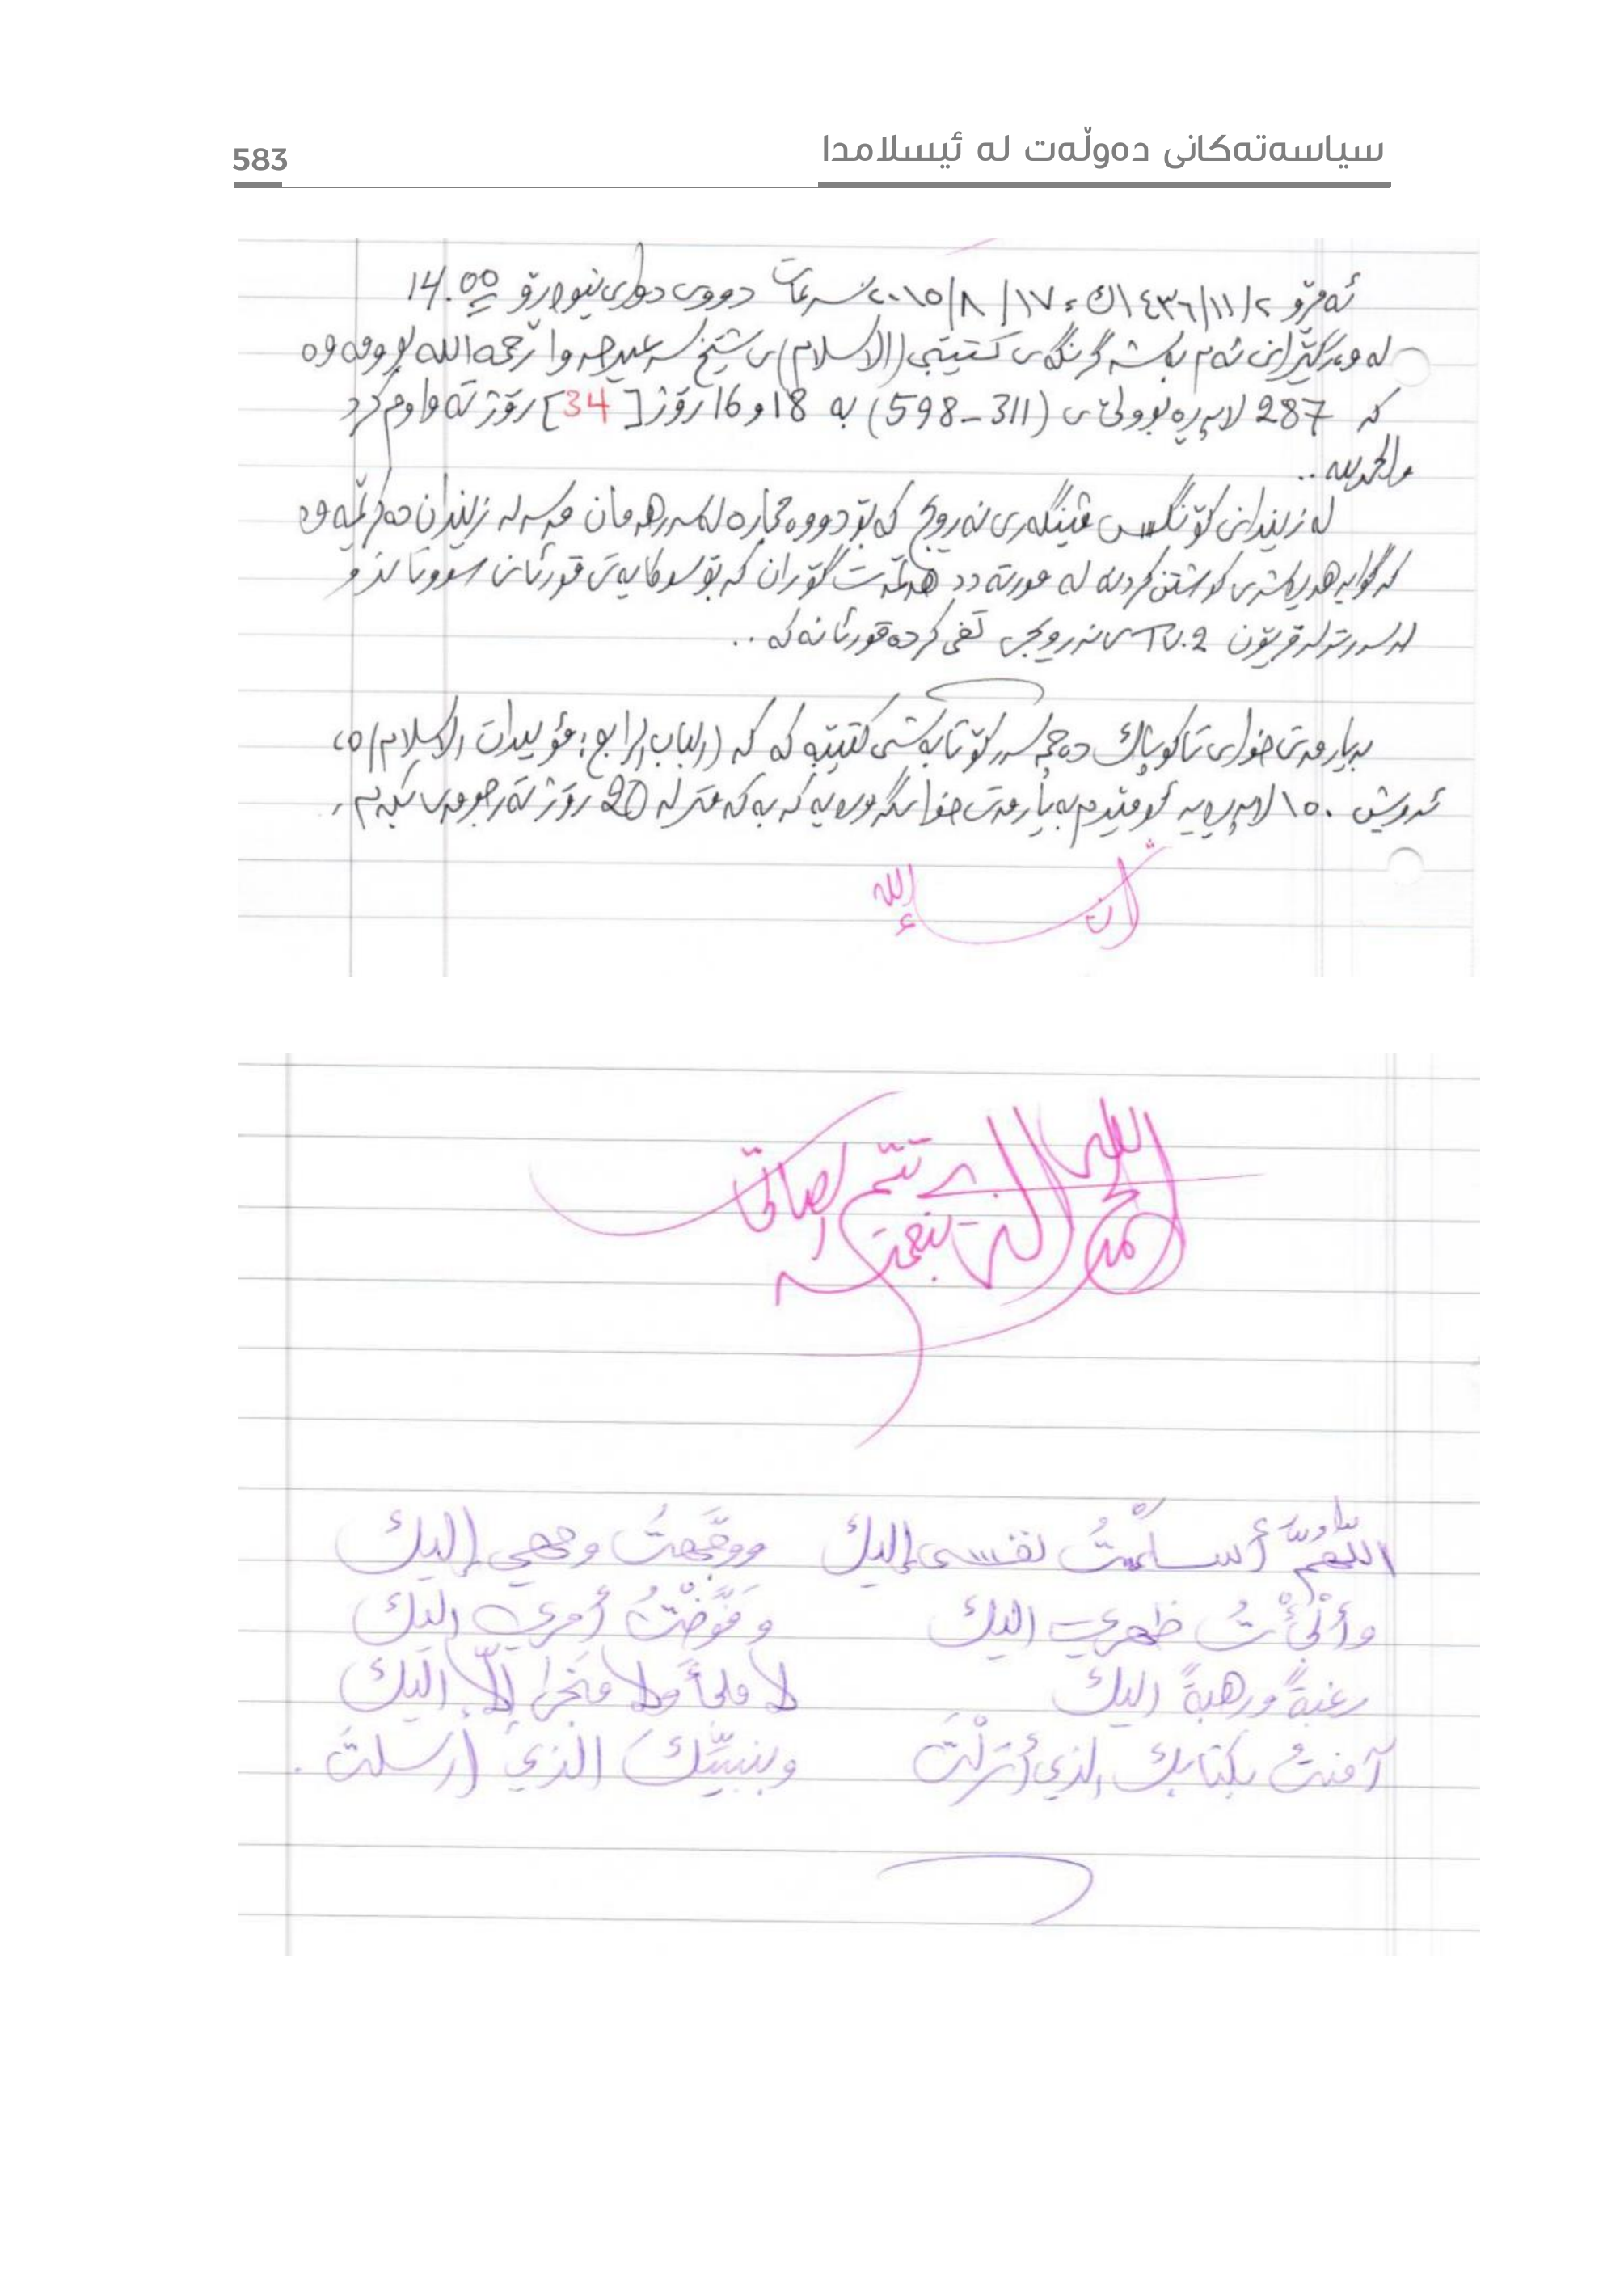 سیاسەتەکانی دەوڵەت لە ئیسلامدا
583
ئەمڕۆ ٢/١١/١٤٣٦ك، ١٧/٨/٢٠١٥ز سەعات دووی دوای نیوەڕۆ 14.00
لە وەرگێڕانی ئەم بەشە گرنگەی کتێبی (الاسلام)ی شێخ سەعید حەوا رحمه الله بوومەوە
کە 287 لاپەڕە بوو لە ی (311-598) بە 18 و 16 ڕۆژ [34] ڕۆژ تەواوم کرد
والحمد لله..
لە زیندانی کۆنگس ڤینگەری نەرویج کە بۆ دووەم جارە لەسەر هەمان قسە لە زیندان دەکرێمەوە
کە گوایە هەڕەشەی کوشتنم کردوە لە مورتەدد هەڵمەت گۆران کە بۆ سوکایەتی قورئانی سووتاند و
لەسەر تەلەفزیۆن TV.2 ی نەرویجی تفی کردە قورئانەکە..
بەیارمەتی خوای تاکوپاک دەچمە سەر کۆتا بەشی کتێبەکە کە (الباب الرابع: مؤيدات الاسلام)ە،
ئەویش ١٥٠ لاپەڕەیە ئومێدم بەیارمەتی خوای گەورەیە کە بە کەمتر لە 20 ڕۆژ تەرجومەی بکەم،
إن شاء الله
الحمد لله الذي بنعمته تتم الصالحات
اللهمّ أسلمْتُ نفسي إليك ووجّهتُ وجهي إليك
وألْجأْتُ ظهري اليك وفوّضْتُ أمري إليك
رغبةً ورهبةً اليك لا ملجأَ ولا منجا إلّا إليك
آمنتُ بكتابك الذي أنزلْتَ وبنبيّكَ الذي أرسلتَ.